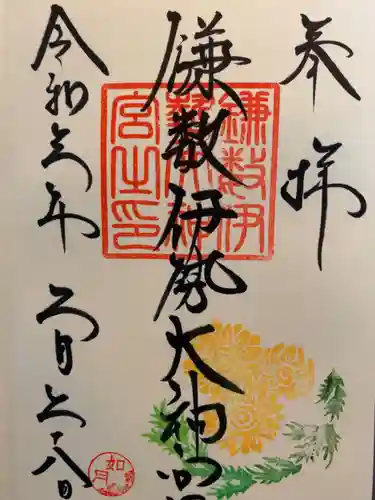 奉拝
鎌数伊勢大神宮
鎌数伊勢大神宮之印
令和六年二月二十八日
如月